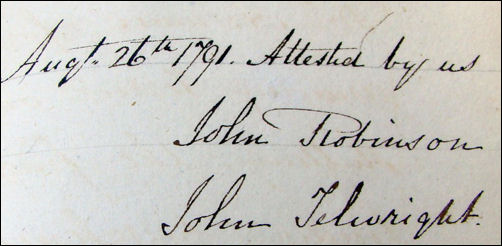 Augt. 26th 1791. Attested by us
John Robinson
John Telwright.